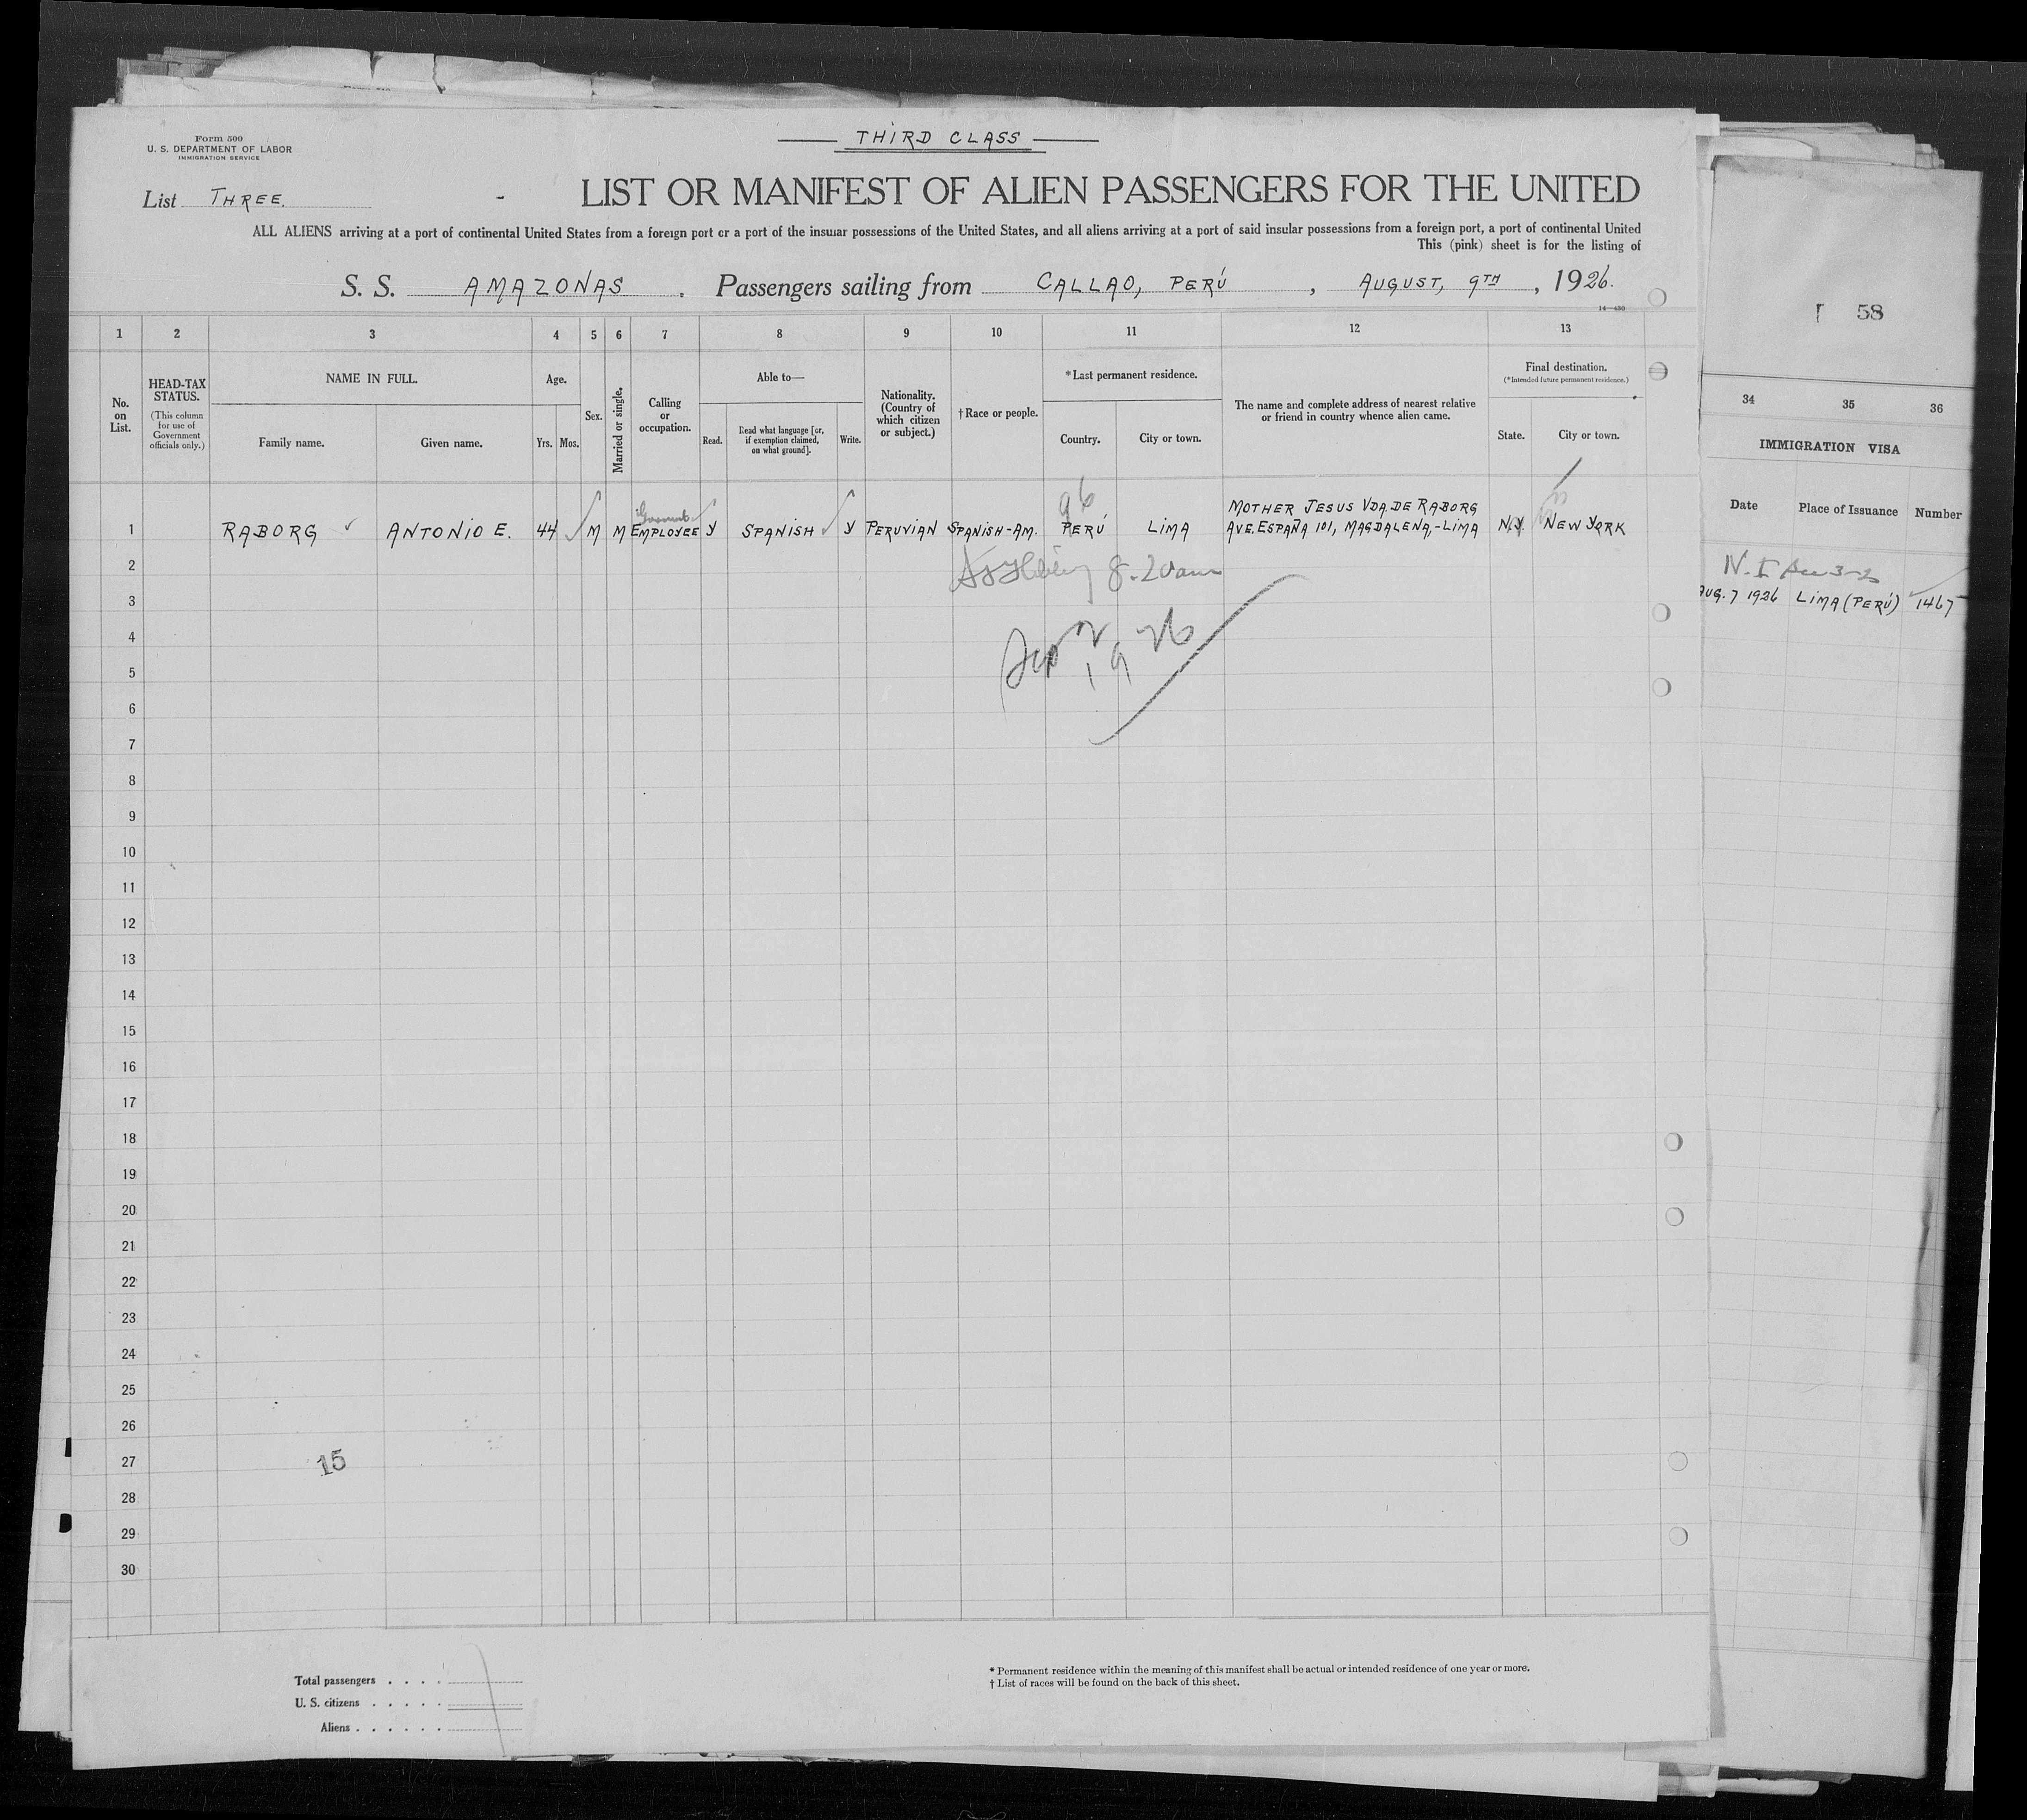 Form 500
U. S. DEPARTMENT OF LABOR
IMMIGRATION SERVICE
THIRD CLASS
List THREE.
LIST OR MANIFEST OF ALIEN PASSENGERS FOR THE UNITED
ALL ALIENS arriving at a port of continental United States from a foreign port or a port of the insular possessions of the United States, and all aliens arriving at a port of said insular possessions from a foreign port, a port of continental United
This (pink) sheet is for the listing of
S. S. AMAZONAS. Passengers sailing from CALLAO, PERÚ, AUGUST, 9TH, 1926.
14—430
58
1 2 3 4 5 6 7 8 9 10 11 12 13
No. on List.
HEAD-TAX STATUS.
(This column for use of Government officials only.)
NAME IN FULL.
Family name. Given name.
Age.
Yrs. Mos.
Sex.
Married or single.
Calling or occupation.
Able to—
Read. Read what language [or, if exemption claimed, on what ground]. Write.
Nationality. (Country of which citizen or subject.)
†Race or people.
*Last permanent residence.
Country. City or town.
The name and complete address of nearest relative or friend in country whence alien came.
Final destination.
(*Intended future permanent residence.)
State. City or town.
34 35 36
IMMIGRATION VISA
Date Place of Issuance Number
96
MOTHER JESUS VDA. DE RABORG
1 RABORG ANTONIO E. 44 M M EMPLOYEE Y SPANISH Y PERUVIAN SPANISH-AM. PERÚ LIMA AVE. ESPAÑA 101, MAGDALENA,-LIMA N.Y. NEW YORK
AUG. 7 1926 LIMA (PERÚ) 1467
2 8-20am
3
4 1926
5
6
7
8
9
10
11
12
13
14
15
16
17
18
19
20
21
22
23
24
25
26
27 15
28
29
30
Total passengers . . . .
U. S. citizens . . . . .
Aliens . . . . . .
* Permanent residence within the meaning of this manifest shall be actual or intended residence of one year or more.
† List of races will be found on the back of this sheet.